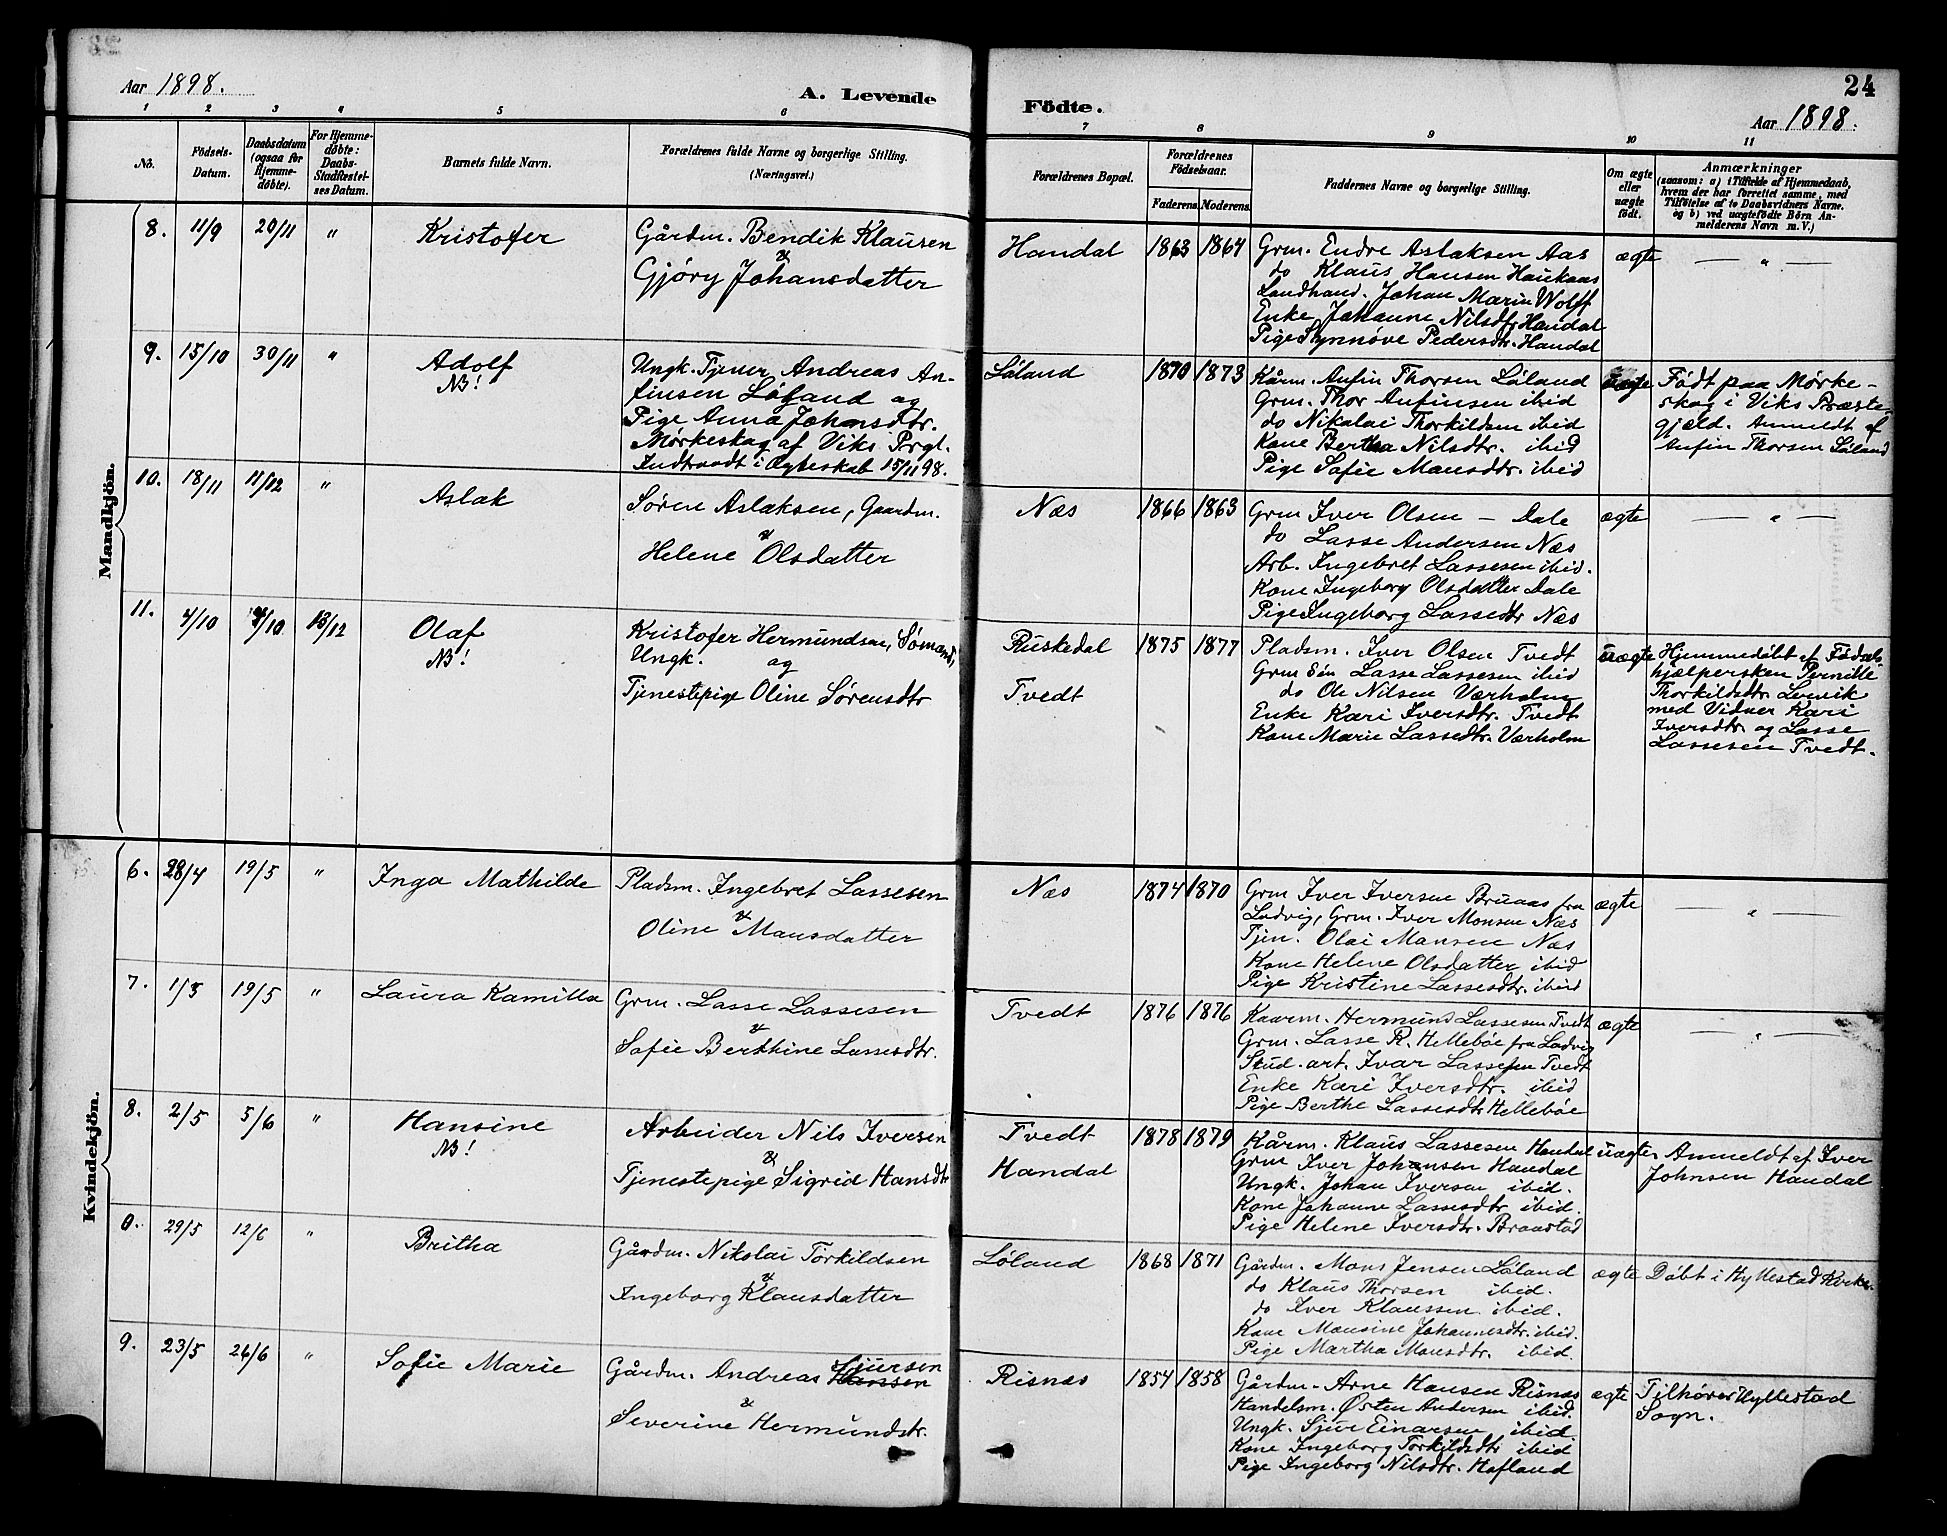 24
Aar 1898.
A. Levende Födte.
Aar 1898.
1 2 3 4 5 6 7 8 9 10 11
No.
Födsels-Datum.
Daabsdatum (ogsaa for Hjemme-döbte).
For Hjemme-döbte: Daabs-Stadfæstel-ses Datum.
Barnets fulde Navn.
Forældrenes fulde Navne og borgerlige Stilling.
(Næringsvei.)
Forældrenes Bopæl.
Forældrenes Födselsaar.
Faderens. Moderens.
Faddernes Navne og borgerlige Stilling.
Om ægte eller uægte födt.
Anmærkninger
(saasom: a) i Tilfælde af Hjemmedaab,
hvem der har forrettet samme, med
Tilföielse af to Daabsvidners Navne.
og b) ved uægtefödte Börn An-
melderens Navn m. V.)
Mandkjön.
8. 11/9 20/11 " Kristofer
Gårdm. Bendik Klausen
&
Gjøry Johansdatter
Handal 1863 1864
Grm. Endre Aslaksen Aas
do Klaus Hansen Haukaas
Landhand. Johan Maria Wolff
Enke Johanne Nilsdtr Handal
Pige Synnøve Pedersdtr. Handal
ægte — " —
9. 15/10 30/11 " Adolf
NB!
Ungk. Tjener Andreas An-
finsen Løland og
Pige Anna Johnsdtr.
Mørkeskog af Viks Prgl.
Indtraadt i Ægteskab 15/11 98.
Løland 1870 1873
Kårm. Anfin Thorsen Løland
Grm. Thor Anfinsen ibid
do Nikolai Thorkildsen ibid
Kone Bertha Nilsdtr. ibid
Pige Sofie Mansdtr. ibid
uægte
Født paa Mørke-
skog i Viks Præste-
gjæld. Anmeldt af
Anfin Thorsen Løland
10. 18/11 11/12 " Aslak
Søren Aslaksen, Gaardm.
&
Helene Olsdatter
Næs 1866 1863
Grm Iver Olsen — Dale
do Lasse Andersen Næs
Arb. Ingebret Lassesen ibid.
Kone Ingeborg Olsdatter Dale
Pige Ingeborg Lassedtr Næs
ægte — " —
11. 4/10 4/10 13/12 Olaf
NB!
Kristofer Hermundsen, Sømand,
Ungk. og
Tjenestepige Oline Sørensdtr
Ruskedal
Tvedt
1875 1877
Pladsm. Iver Olsen Tvedt
Grm Søn Lasse Lassesen ibid
do Ole Nilsen Værholm
Enke Kari Iversdtr. Tvedt
Kone Marie Lassedtr. Værholm
uægte
Hjemmedøbt af Fødsels-
hjælpersken Pernille
Thorkildsdtr. Leirvik
med Vidner Kari
Iversdtr. og Lasse
Lassesen Tvedt.
Kvindekjön.
6. 28/4 19/5 " Inga Mathilde
Pladsm. Ingebret Lassesen
&
Oline Mansdatter
Næs 1874 1870
Grm Iver Iversen Bruaas fra
Ladvig, Grm. Iver Monsen Næs
Tjen. Olai Mansen Næs
Kone Helene Olsdatter ibid
Pige Kristine Lassesdtr. ibid
ægte — " —
7. 1/5 19/5 " Laura Kamilla
Grm. Lasse Lassesen
&
Sofie Berthine Lassesdtr.
Tvedt 1876 1876
Kaarm. Hermund Lassesen Tvedt
Grm. Lasse R. Hellebøe fra Ladvig
Stud. art. Ivar Lassesen Tvedt
Enke Kari Iversdtr. ibid
Pige Berthe Lassesdtr Hellebøe
ægte — " —
8. 2/5 5/6 " Hansine
NB!
Arbeider Nils Iversen
&
Tjenestepige Sigrid Hansdtr
Tvedt
Handal
1878 1879
Kårm. Klaus Lassesen Handal
Grm Iver Johansen Handal
Ungk. Johan Iversen ibid.
Kone Johanne Lassesdtr ibid.
Pige Helene Iversdtr. Braastad
uægte
Anmeldt af Iver
Johnsen Handal
0. 29/5 12/6 " Britha
Gårdm. Nikolai Torkildsen
&
Ingeborg Klausdatter
Løland 1868 1871
Gårdm. Mons Jensen Løland
do Klaus Thorsen ibid.
do Iver Klaussen ibid.
Kone Mansine Johannesdtr. ibid.
Pige Martha Monsdtr. ibid.
ægte Døbt i Hyllestad Kirke.
9. 23/5 26/6 " Sofie Marie
Gårdm. Andreas Hansen Sjursen
&
Severine Hermundsdtr.
Risnæs 1854 1858
Gårdm. Arne Hansen Risnæs
Handelsm. Østen Andersen ibid.
Ungk. Sjur Einarsen ibid.
Kone Ingeborg Torkildsdtr ibid
Pige Ingeborg Nilsdtr. Hofland
ægte
Tilhører Hyllestad
Sogn.